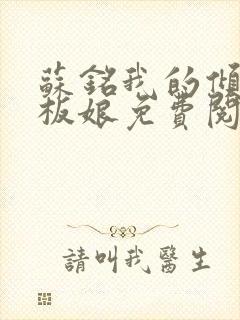 蘇銘我的傾
板娘免費閱
請叫我醫生